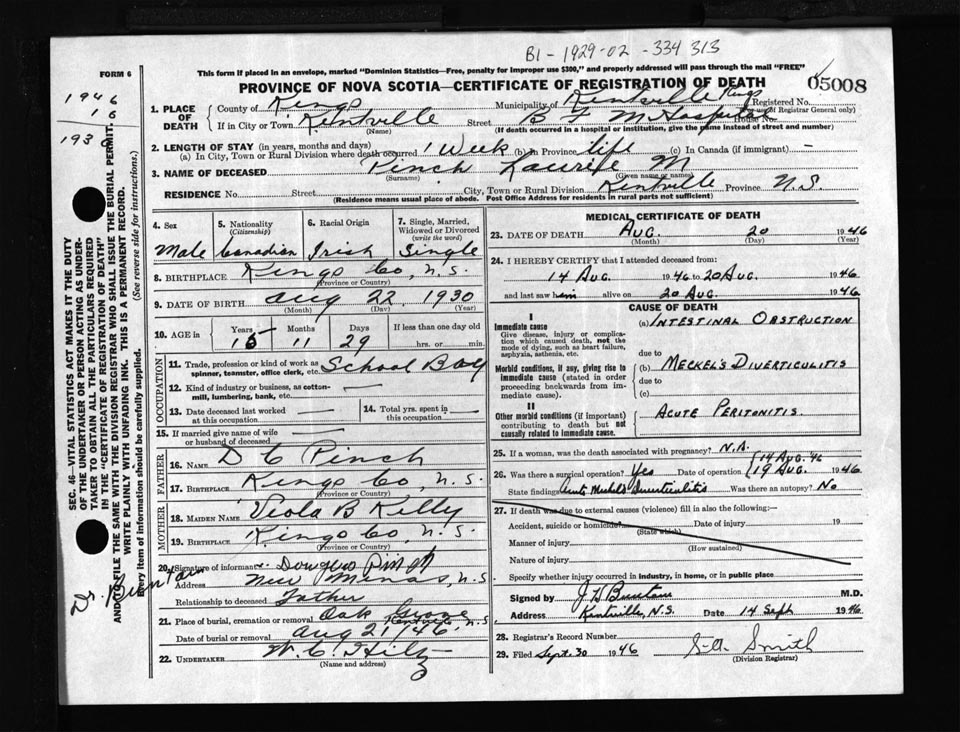 B1-1929-02-334313
FORM 6
This form if placed in an envelope, marked "Dominion Statistics—Free, penalty for improper use $300," and properly addressed will pass through the mail "FREE"
PROVINCE OF NOVA SCOTIA—CERTIFICATE OF REGISTRATION OF DEATH
05008
1946
193
1. PLACE OF DEATH
County of Kings
Municipality of Kentville Kings
Registered No.
(use of Registrar General only)
If in City or Town Kentville Street B F M Hospital House No.
(Name)
(If death occurred in a hospital or institution, give the name instead of street and number)
2. LENGTH OF STAY (in years, months and days)
(a) In City, Town or Rural Division where death occurred 1 Week (b) in Province life (c) In Canada (if immigrant) —
3. NAME OF DECEASED Pinch Laurie M
(Surname) (Given name or names)
RESIDENCE No. Street City, Town or Rural Division Kentville Province N.S.
(Residence means usual place of abode. Post Office Address for residents in rural parts not sufficient)
4. Sex 5. Nationality (Citizenship) 6. Racial Origin 7. Single, Married, Widowed or Divorced (write the word)
Male Canadian Irish Single
8. BIRTHPLACE Kings Co, N.S.
(Province or Country)
9. DATE OF BIRTH Aug 22 1930
(Month) (Day) (Year)
10. AGE in Years Months Days If less than one day old
15 11 29 hrs. or min.
OCCUPATION
11. Trade, profession or kind of work as spinner, teamster, office clerk, etc. School Boy
12. Kind of industry or business, as cotton-mill, lumbering, bank, etc. —
13. Date deceased last worked at this occupation —
14. Total yrs. spent in this occupation —
15. If married give name of wife or husband of deceased —
FATHER
16. NAME D C Pinch
17. BIRTHPLACE Kings Co, N.S.
(Province or Country)
MOTHER
18. MAIDEN NAME Viola B Kelly
19. BIRTHPLACE Kings Co, N.S.
(Province or Country)
20. Signature of informant Douglas Pinch
Address New Minas, N.S
Relationship to deceased Father
21. Place of burial, cremation or removal Oak Grove Kentville, N.S
Date of burial or removal Aug 21/46
22. UNDERTAKER W. C. Hiltz
(Name and address)
MEDICAL CERTIFICATE OF DEATH
23. DATE OF DEATH Aug. 20 1946
(Month) (Day) (Year)
24. I HEREBY CERTIFY that I attended deceased from:
14 Aug. 1946 to 20 Aug. 1946
and last saw him alive on 20 Aug. 1946
CAUSE OF DEATH
I
Immediate cause
Give disease, injury or complication which caused death, not the mode of dying, such as heart failure, asphyxia, asthenia, etc.
(a) INTESTINAL OBSTRUCTION
due to
Morbid conditions, if any, giving rise to immediate cause (stated in order proceeding backwards from immediate cause).
(b) MECKEL'S DIVERTICULITIS
due to
(c)
II
Other morbid conditions (if important) contributing to death but not causally related to immediate cause.
ACUTE PERITONITIS.
25. If a woman, was the death associated with pregnancy? N.A.
26. Was there a surgical operation? Yes Date of operation 14 Aug. 46 19 Aug. 1946
State findings Acute Meckel's Diverticulitis Was there an autopsy? No
27. If death was due to external causes (violence) fill in also the following:—
Accident, suicide or homicide? Date of injury 19
(State which)
Manner of injury
(How sustained)
Nature of injury
Specify whether injury occurred in industry, in home, or in public place
Signed by J B M.D.
Address Kentville, N.S. Date 14 Sept 1946.
28. Registrar's Record Number
29. Filed Sept. 30 1946 Smith
(Division Registrar)
SEC. 46—VITAL STATISTICS ACT MAKES IT THE DUTY OF THE UNDERTAKER OR PERSON ACTING AS UNDERTAKER TO OBTAIN ALL THE PARTICULARS REQUIRED IN THE "CERTIFICATE OF REGISTRATION OF DEATH" AND TO FILE THE SAME WITH THE DIVISION REGISTRAR WHO SHALL ISSUE THE BURIAL PERMIT.
WRITE PLAINLY WITH UNFADING INK. THIS IS A PERMANENT RECORD.
Every item of information should be carefully supplied. (See reverse side for instructions.)
Dr.